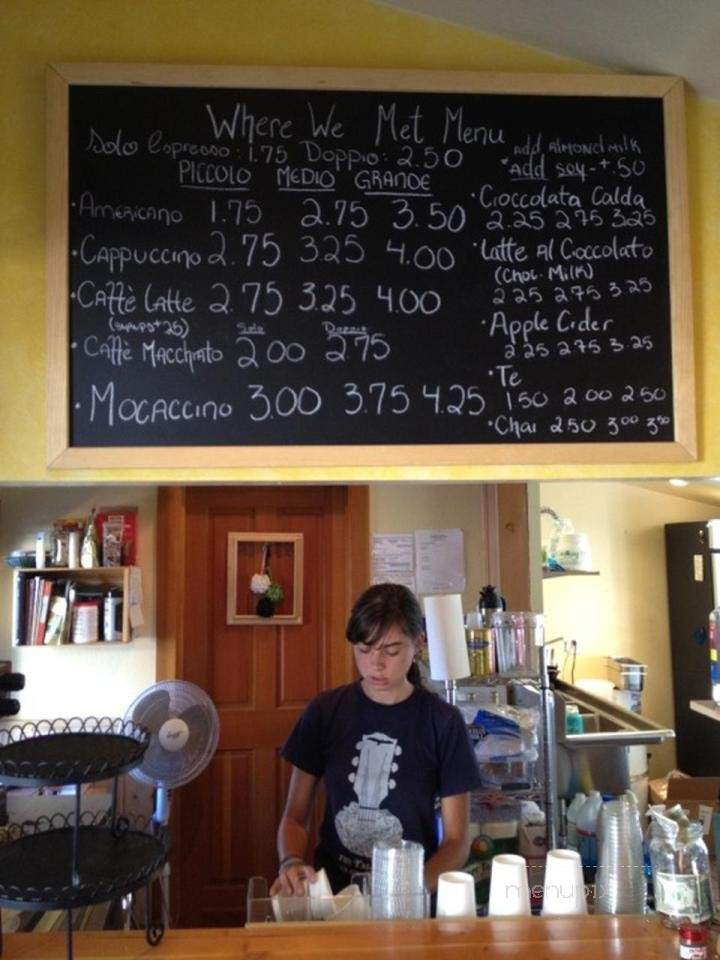 Where We Met Menu
Solo Espresso: 1.75 Doppio: 2.50
PICCOLO MEDIO GRANDE
· Americano 1.75 2.75 3.50
· Cappuccino 2.75 3.25 4.00
· Caffè Latte 2.75 3.25 4.00
(syrups + 25)
Solo Doppio
· Caffè Macchiato 2.00 2.75
· Mocaccino 3.00 3.75 4.25
add Almond Milk
*Add soy - +.50
· Cioccolata Calda
2.25 2.75 3.25
· Latte Al Cioccolato
(Choc. Milk)
2 25 2.75 3.25
· Apple Cider
2 25 2.75 3.25
· Te
1.50 2.00 2.50
· Chai 2.50 3.00 3.50
menupix